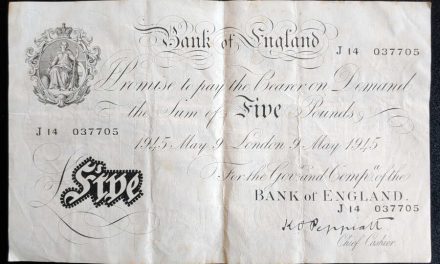 Bank of England
J 14 037705
I Promise to pay the Bearer on Demand
the Sum of Five Pounds
J 14 037705
1945 May 9 London 9 May 1945
For the Govr. and Compa. of the
BANK of ENGLAND.
J 14 037705
Five
K O Peppiatt
Chief Cashier